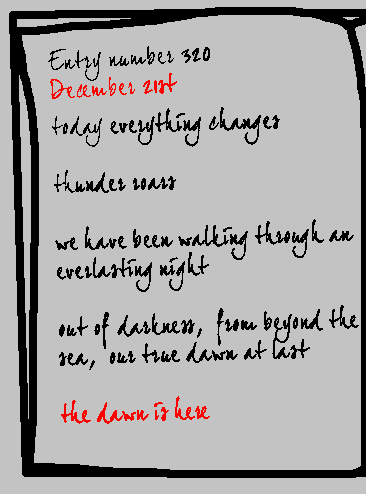 Entry number 320
December 21st
today everything changes
thunder roars
we have been walking through an
everlasting night
out of darkness, from beyond the
sea, our true dawn at last
the dawn is here